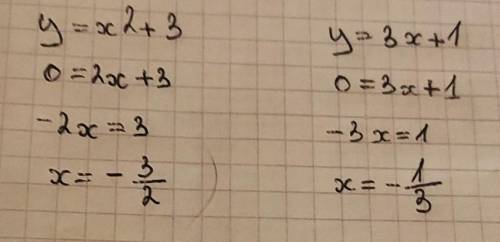 y = x2 + 3
0 = 2x + 3
-2x = 3
x = - 3/2
y = 3x + 1
0 = 3x + 1
-3x = 1
x = - 1/3